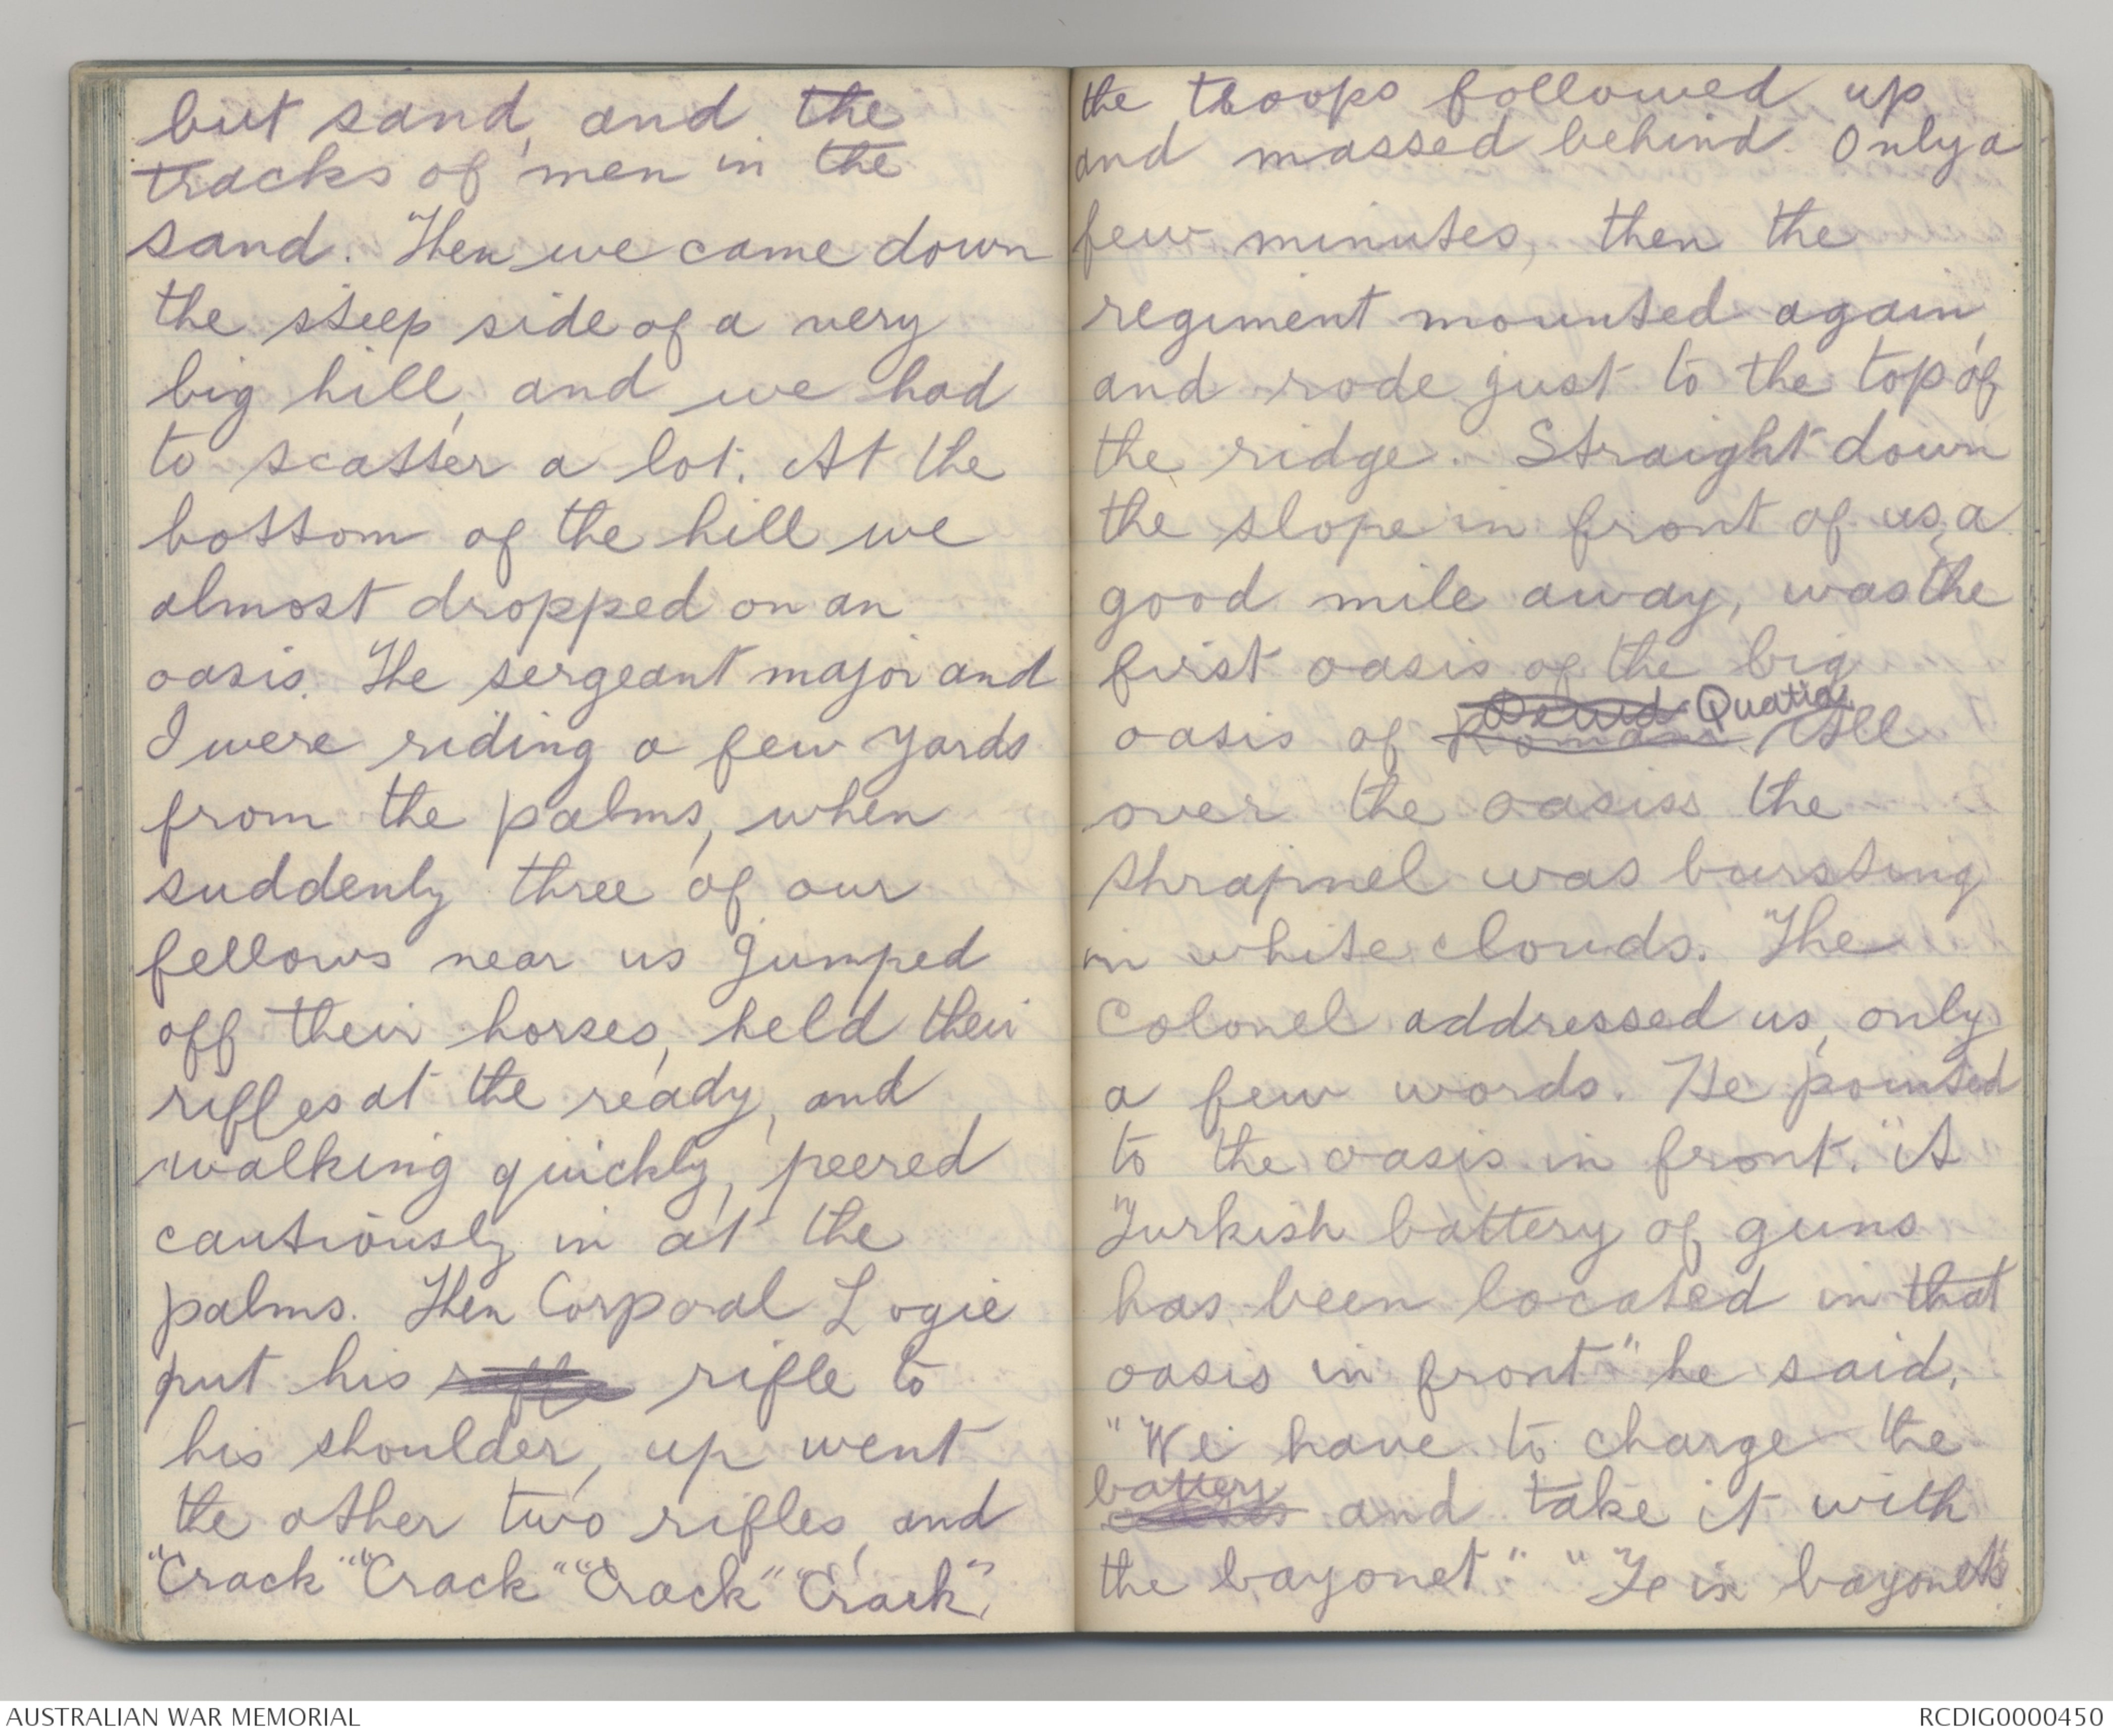 but sand, and the
tracks of men in the
sand. Then we came down
the steep side of a very
big hill, and we had
to scatter a lot. At the
bottom of the hill we
almost dropped on an
oasis. The sergeant major and
I were riding a few yards
from the palms, when
suddenly three of our
fellows near us jumped
off their horses, held their
rifles at the ready, and
walking quickly, peered
cautiously in at the
palms. Then Corporal Logie
put his rifle rifle to
his shoulder, up went
the other two rifles, and
"Crack" "Crack" "Crack" "Crack".
the troops followed up
and massed behind. Only a
few minutes, then the
regiment mounted again,
and rode just to the top of
the ridge. Straight down
the slope in front of us, a
good mile away, was the
first oasis of the big
Quatia
oasis of Romani. All
over the oasiss the
shrapnel was bursting
in white clouds. The
Colonel addressed us, only
a few words. He pointed
to the oasis in front. "A
Turkish battery of guns
has been located in that
oasis in front" he said.
"We have to charge the
battery
and take it with
the bayonet". "Fix bayonets".
AUSTRALIAN WAR MEMORIAL
RCDIG0000450